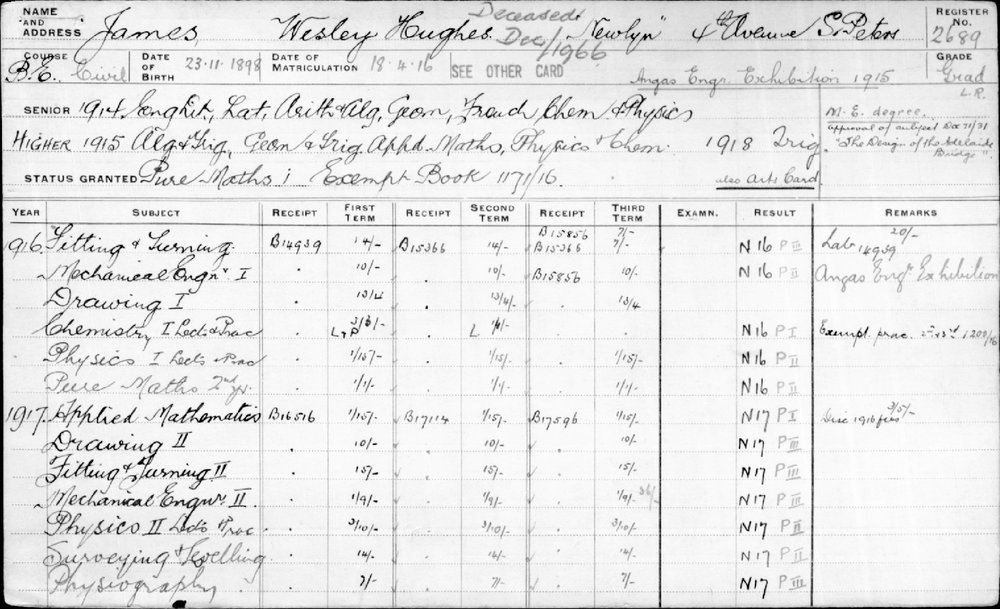 NAME AND ADDRESS James, Wesley Hughes Deceased Dec/1966 "Newlyn" 4th Avenue St Peters REGISTER NO. 2689
COURSE B.E. Civil DATE OF BIRTH 23.11.1898 DATE OF MATRICULATION 18.4.16 SEE OTHER CARD Angas Engr. Exhibition 1915 GRADE Grad L.R.
SENIOR 1914 Eng Lit, Lat, Arith & Alg, Geom, Trig Chem & Physics
M.E. degree.
approval of subject Dec 71/31
"The Design of the Adelaide Bridge".
HIGHER 1915 Alg & Trig, Geom & Trig, Appd. Maths, Physics & Chem. 1918 Trig.
STATUS GRANTED Pure Maths i Exempt Book 1171/16. also Arts Card
YEAR SUBJECT RECEIPT FIRST TERM RECEIPT SECOND TERM RECEIPT THIRD TERM EXAMN. RESULT REMARKS
1916 Fitting & Turning. B14939 14/- B15366 14/- B15856 7/- B15366 7/- N16 P III Lab 20/- 14939
Mechanical Engr. I 10/- 10/- B15856 10/- N16 P II Angas Engr Exhibition
Drawing I 13/4 13/4/- 13/4
Chemistry I Lects & Prac L & P L N16 P I Exempt. prac.
Physics I Lects & Prac 1/15/- 1/15/- 1/15/- N16 P II
Pure Maths 2nd yr. 1/1/- 1/1/- 1/1/- N16 P II
1917. Applied Mathematics B16516 1/15/- B17114 1/15/- B17596 1/15/- N17 P I Disc 1916 fees 3/5/-
Drawing II 10/- 10/- 10/- N17 P III
Fitting & Turning II 15/- 15/- 15/- N17 P III
Mechanical Engnr. II 1/9/- 1/9/- 1/9/- 36/- N17 P III
Physics II Lects & Prac 3/10/- 3/10/- 3/10/- N17 P II
Surveying & Levelling 14/- 14/- 14/- N17 P II
Physiography 7/- 7/- 7/- N17 P III